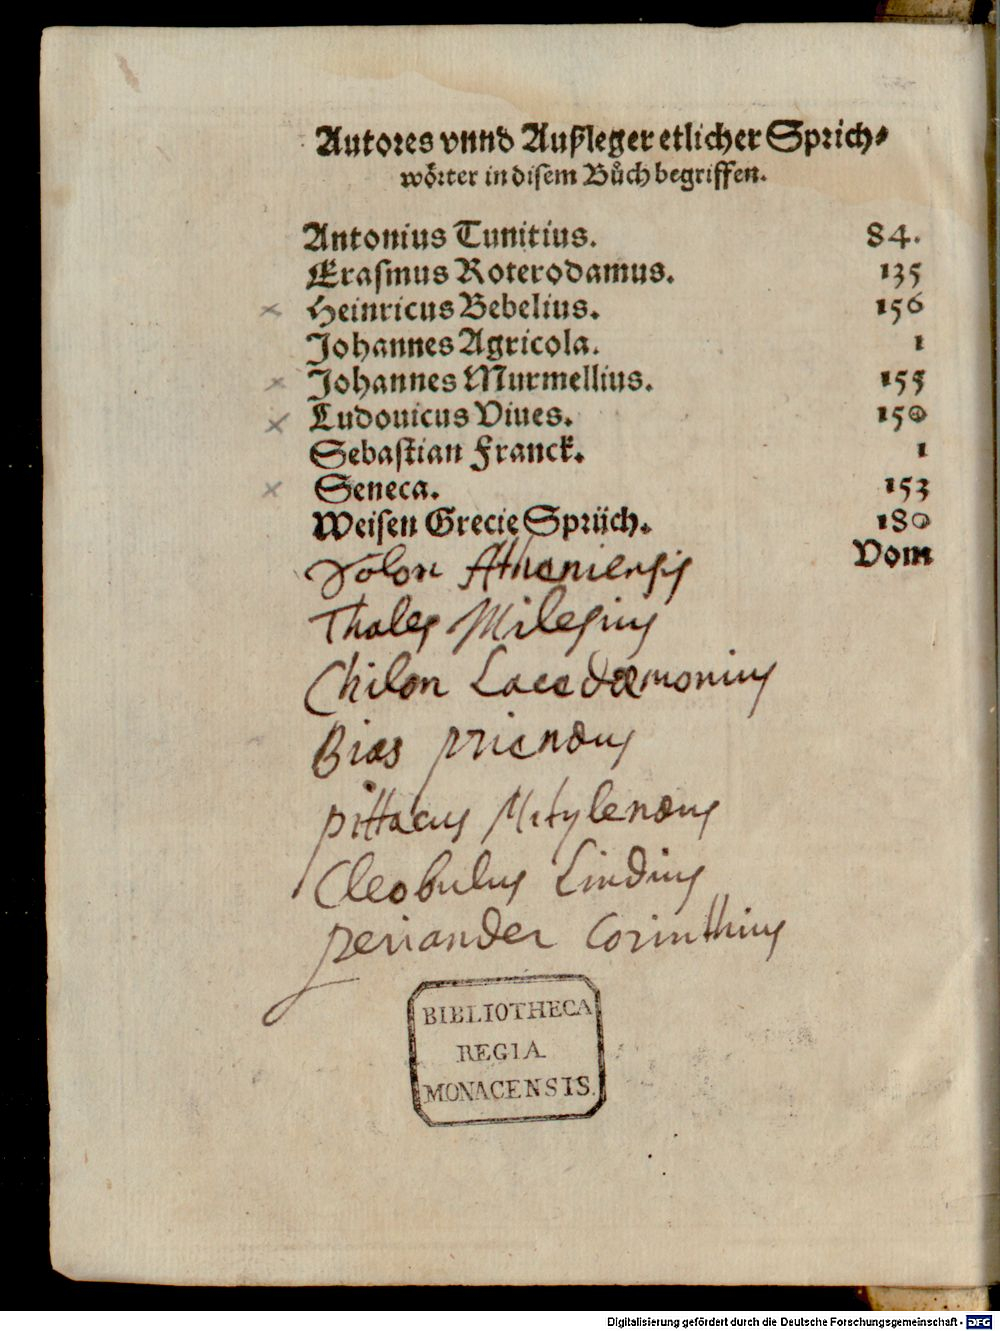 Autores vnnd Außleger etlicher Sprich⸗
wörter in disem Bůch begriffen.
Antonius Tunitius. 84.
Erasmus Roterodamus. 135
× Heinricus Bebelius. 156
Johannes Agricola. 1
× Johannes Murmellius. 155
× Ludouicus Viues. 150
Sebastian Franck. 1
× Seneca. 153
Weisen Grecie Sprüch. 180
Vom
Solon Atheniensis
Thales Milesius
Chilon Lacedæmonius
Bias prienæus
pittacus Mitylenæus
Cleobulus Lindius
periander Corinthius
BIBLIOTHECA
REGIA
MONACENSIS.
Digitalisierung gefördert durch die Deutsche Forschungsgemeinschaft - DFG